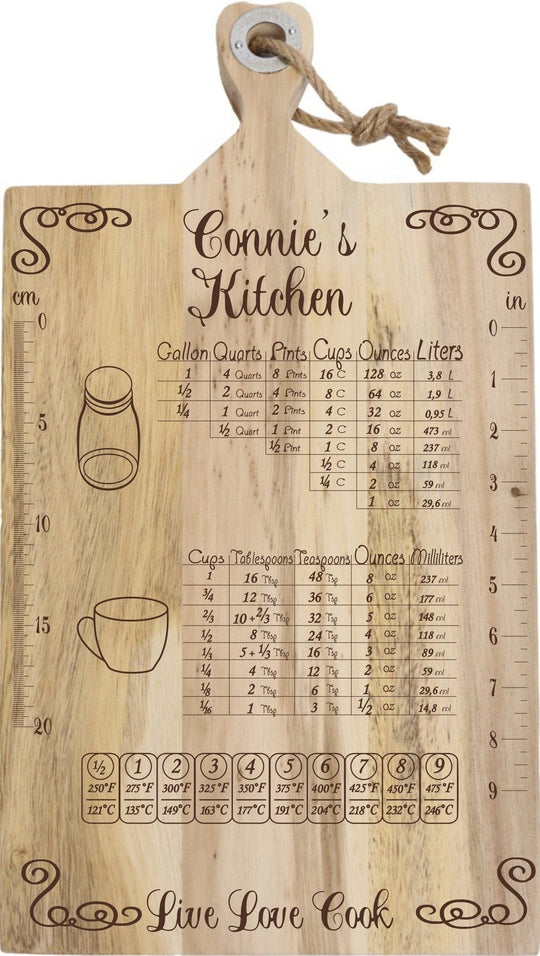 Connie's
Kitchen
cm
in
0
5
10
15
20
0
1
2
3
4
5
6
7
8
9
Gallon Quarts Pints Cups Ounces Liters
1 4 Quarts 8 Pints 16 C 128 oz 3,8 L
1/2 2 Quarts 4 Pints 8 C 64 oz 1,9 L
1/4 1 Quart 2 Pints 4 C 32 oz 0,95 L
1/2 Quart 1 Pint 2 C 16 oz 473 ml
1/2 Pint 1 C 8 oz 237 ml
1/2 C 4 oz 118 ml
1/4 C 2 oz 59 ml
1 oz 29,6 ml
Cups Tablespoons Teaspoons Ounces Milliliters
1 16 Tbsp 48 Tsp 8 oz 237 ml
3/4 12 Tbsp 36 Tsp 6 oz 177 ml
2/3 10+2/3 Tbsp 32 Tsp 5 oz 148 ml
1/2 8 Tbsp 24 Tsp 4 oz 118 ml
1/3 5+1/3 Tbsp 16 Tsp 3 oz 89 ml
1/4 4 Tbsp 12 Tsp 2 oz 59 ml
1/8 2 Tbsp 6 Tsp 1 oz 29,6 ml
1/16 1 Tbsp 3 Tsp 1/2 oz 14,8 ml
1/2 1 2 3 4 5 6 7 8 9
250°F 275°F 300°F 325°F 350°F 375°F 400°F 425°F 450°F 475°F
121°C 135°C 149°C 163°C 177°C 191°C 204°C 218°C 232°C 246°C
Live Love Cook